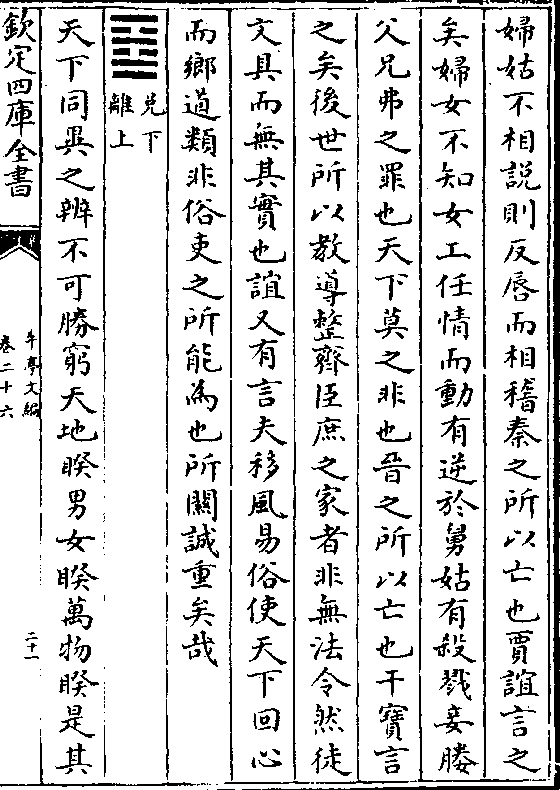 婦姑不相說則反唇而相稽秦之所以亡也賈誼言之
矣婦女不知女工任情而動有逆於舅姑有殺戮妾媵
父兄弗之罪也天下莫之非也晉之所以亡也干寶言
之矣後世所以教導整齊臣庶之家者非無法令然徒
文具而無其實也誼又有言夫移風易俗使天下回心
而鄉道類非俗吏之所能為也所關誠重矣哉
䷥
兌下
離上
天下同異之辨不可勝窮天地睽男女睽萬物睽是其
欽定四庫全書
午亭文編
卷二十六
二十一